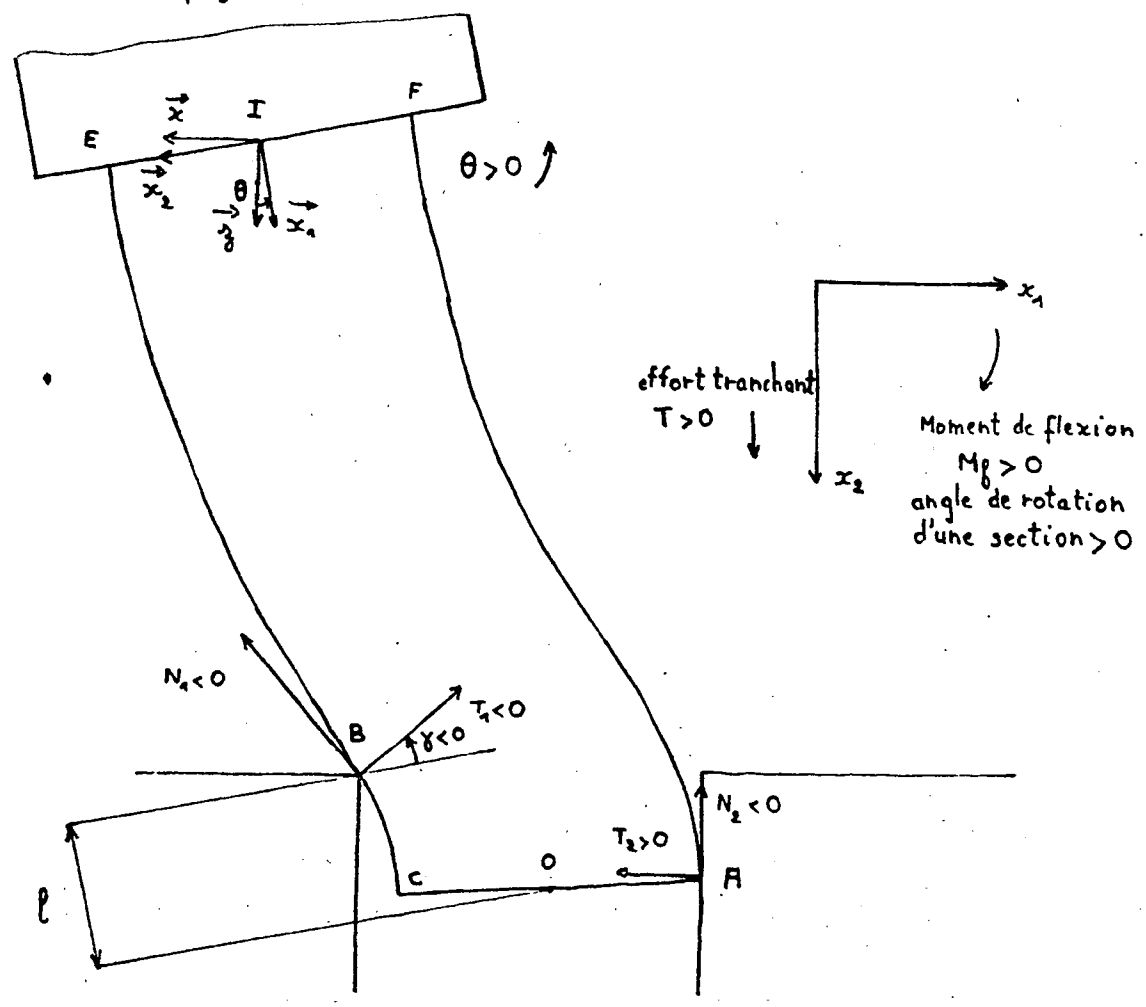 F
I
x
E
θ > 0
x₂
θ
z
x₁
x₁
effort tranchant
T > 0
Moment de flexion
Mf > 0
x₂
angle de rotation
d'une section > 0
N₁ < 0
T₁ < 0
B
γ < 0
N₂ < 0
T₂ > 0
O
C
A
l